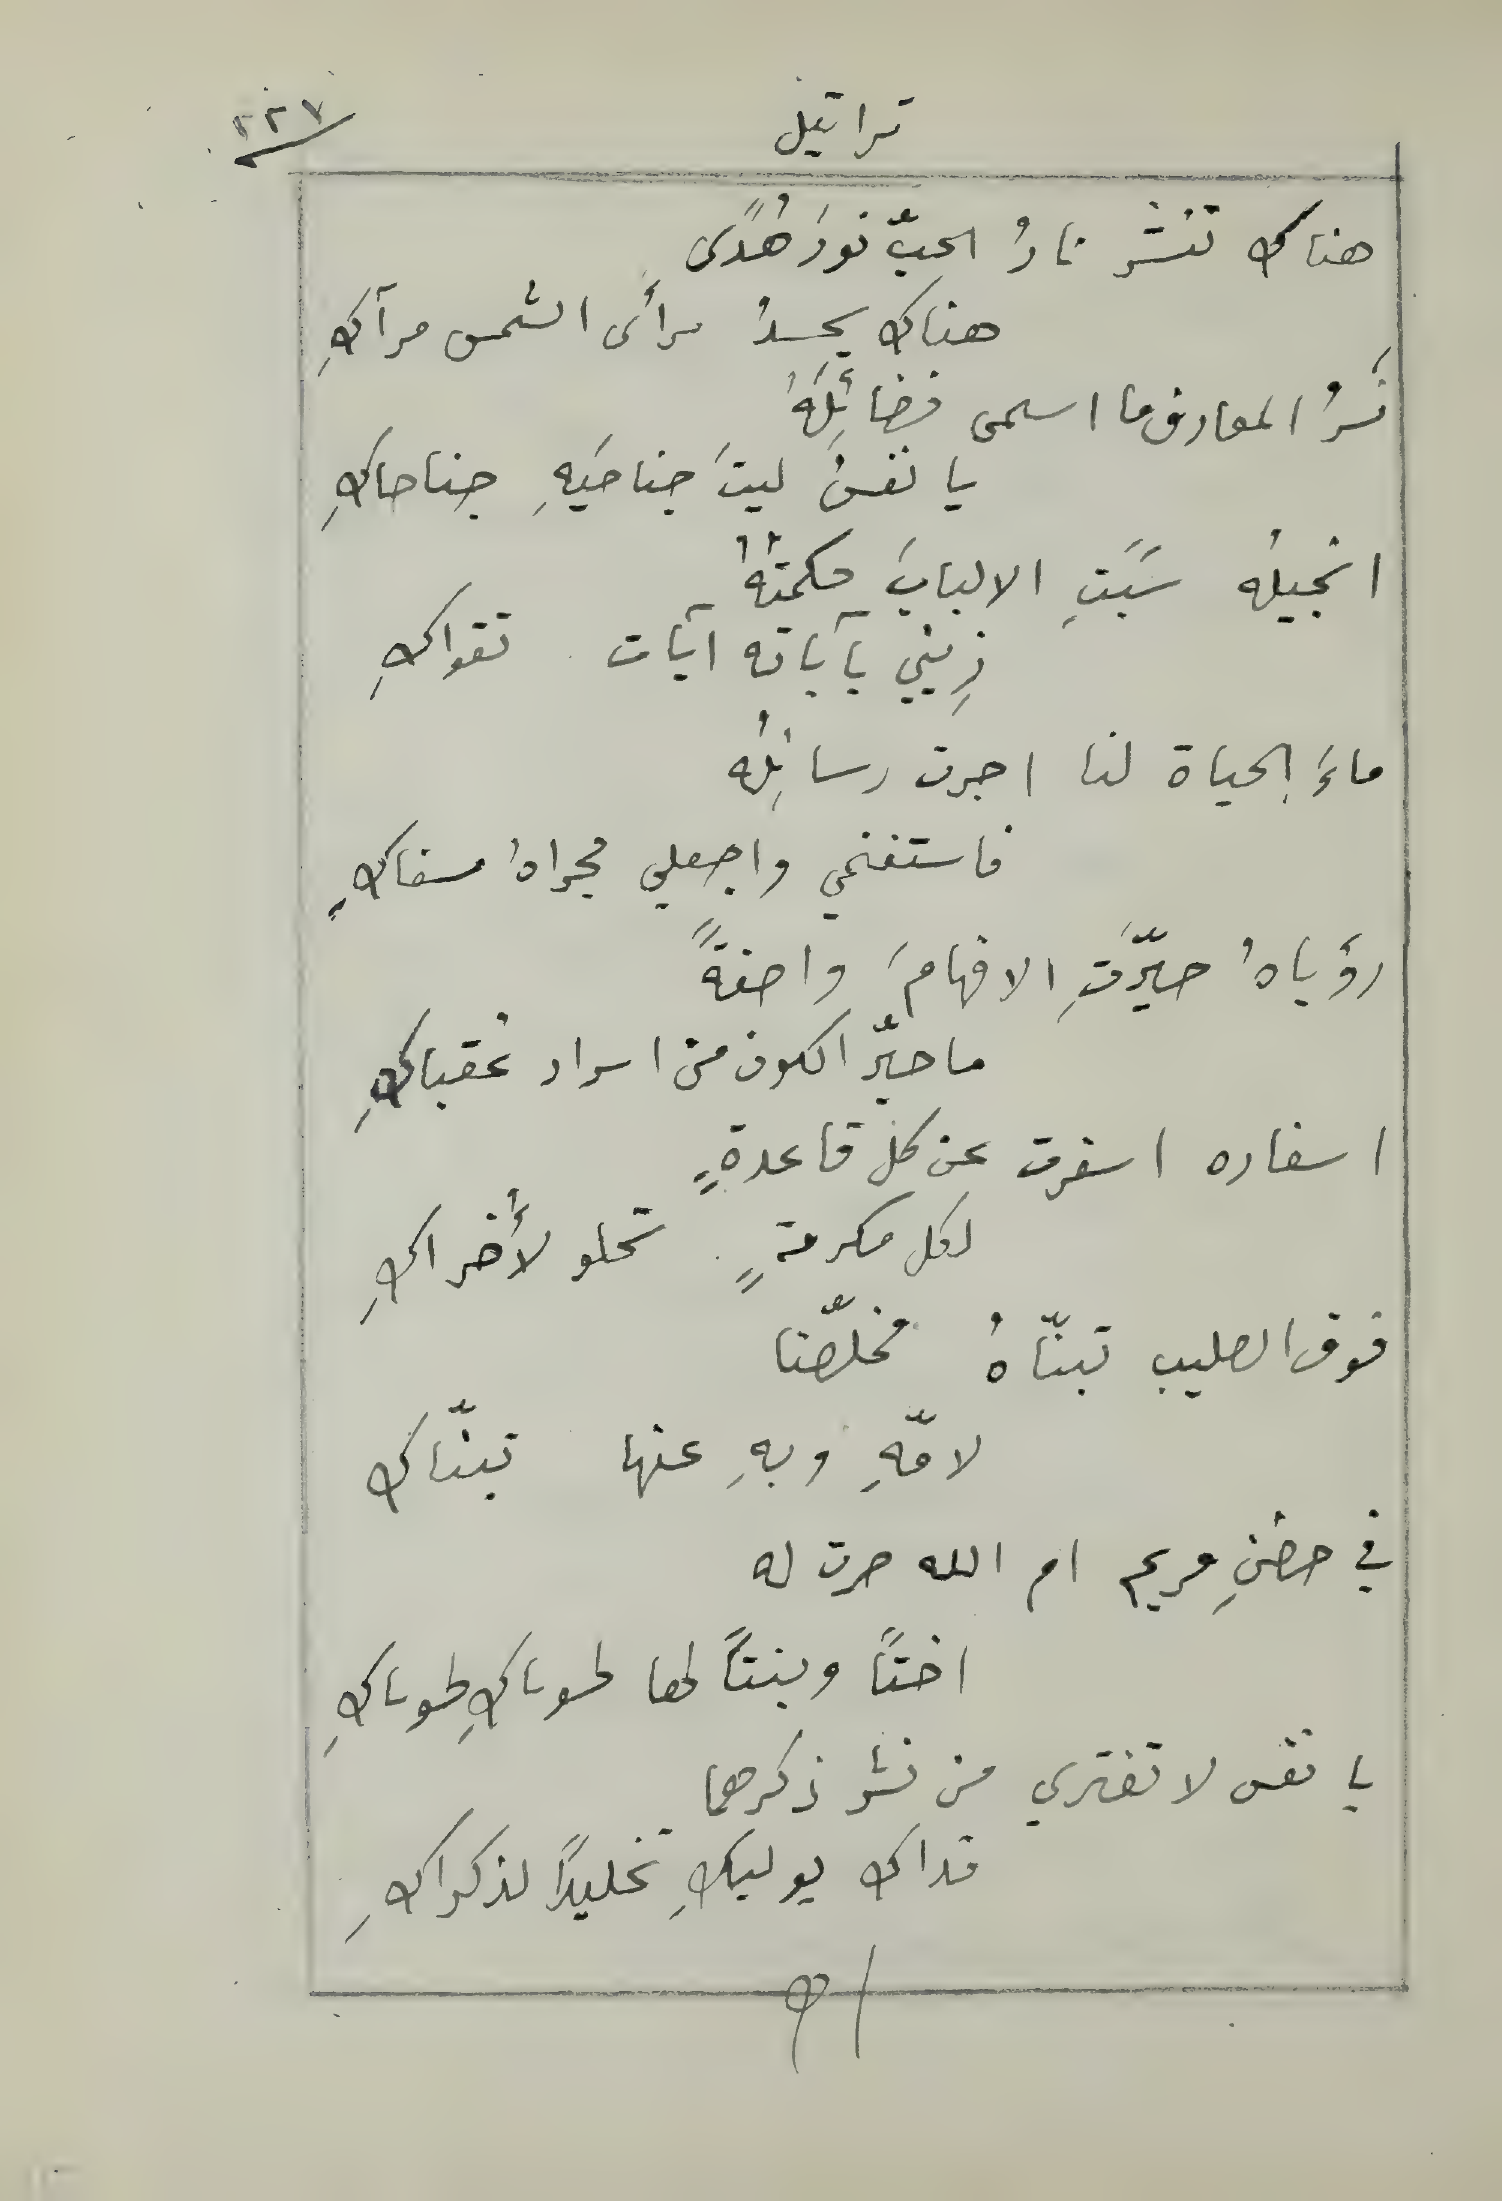 تراتيل
٢٢٧
هناك تنشر نارُ الحبِّ نورَ هُدًى
هناك يحسدُ مرأى الشمس مرآكِ
نَسرُ المعارف ما اسمى فضائِلَهُ
يا نفسُ ليتَ جناحَيهِ جناحاكِ
انجيلهُ سَبَتِ الالبابَ حكمتُهُ
زِيني بآياته آيات تقواكِ
ماءَ الحياة لنا اجرت رسائِلُهُ
فاستغنمي واجعلي مجراهُ مسقاكِ
رؤياهُ حيَّرَتِ الافهامَ واصفةً
ما حيّر الكون من اسرار عُقباكِ
اسفاره اسفرت عن كل قاعدةٍ
لكل مكرمةٍ تحلو لأُخراكِ
فوق الصليب تبنّاهُ مخلصّنا
لامّهِ وبهِ عنها تبنّاك
في حضنِ مريم ام الله صرت له
اختًا وبنتًا لها طوباكِ طوباكِ
يا نفس لا تفتري من نشر ذكرهما
فداك يوليكِ تخليدًا لذكراكِ